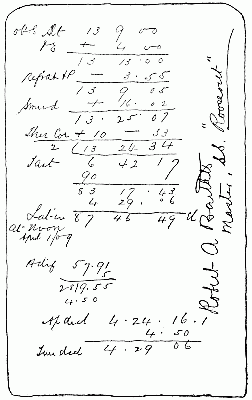 obs alt 13 9 00
+ 4 00
13 13.00
refrac + P - 3.55
13 9 05
+ 16.02
13.25.07
Index Cor + 10 - 33
2 (13 24 34
6 42 17
90
83 17.43
4 29.06
Lat in 87 46 49 N
At Noon
April 1/09
57.91
5
289.55
4.50
Ap decl 4.24.16.1
4.50
True decl 4.29 06
Robert A Bartlett
Master, SS. "Roosevelt"